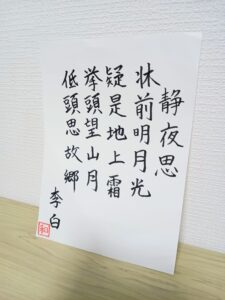 静夜思
牀前明月光
疑是地上霜
挙頭望山月
低頭思故郷
李白